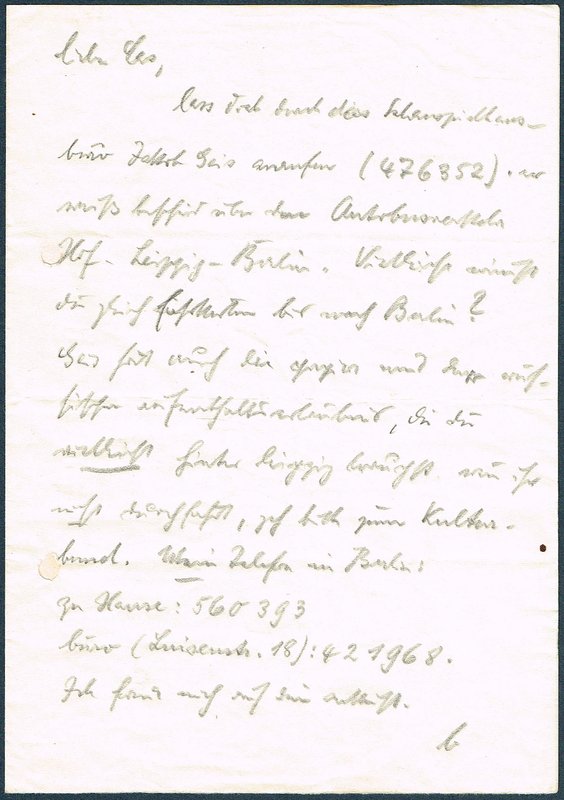 lieber Cas,
lass dich durch das Schauspielhaus-
büro Jakob Geis anrufen (476352). er
weiß bescheid über den Autobusverkehr
Hof - Leipzig - Berlin. Vielleicht nimmst
du gleich fahrkarten bis nach Berlin?
Geis hat auch die papiere und
aufenthaltserlaubnis, die du
vielleicht hinter Leipzig brauchst. wenn ihr
nicht durchfahrt, geh bitte zum Kultur-
bund. Mein Telefon in Berlin:
zu Hause: 560393
büro (Luisenstr. 18): 421968.
Ich freue mich auf deine ankunft.
b